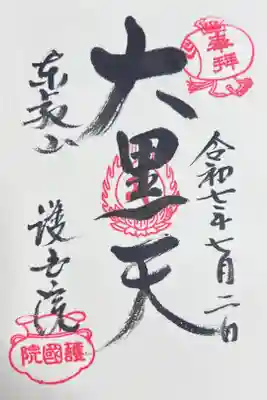 奉拝
令和七年七月二日
大黒天
東叡山
護国院
護國院